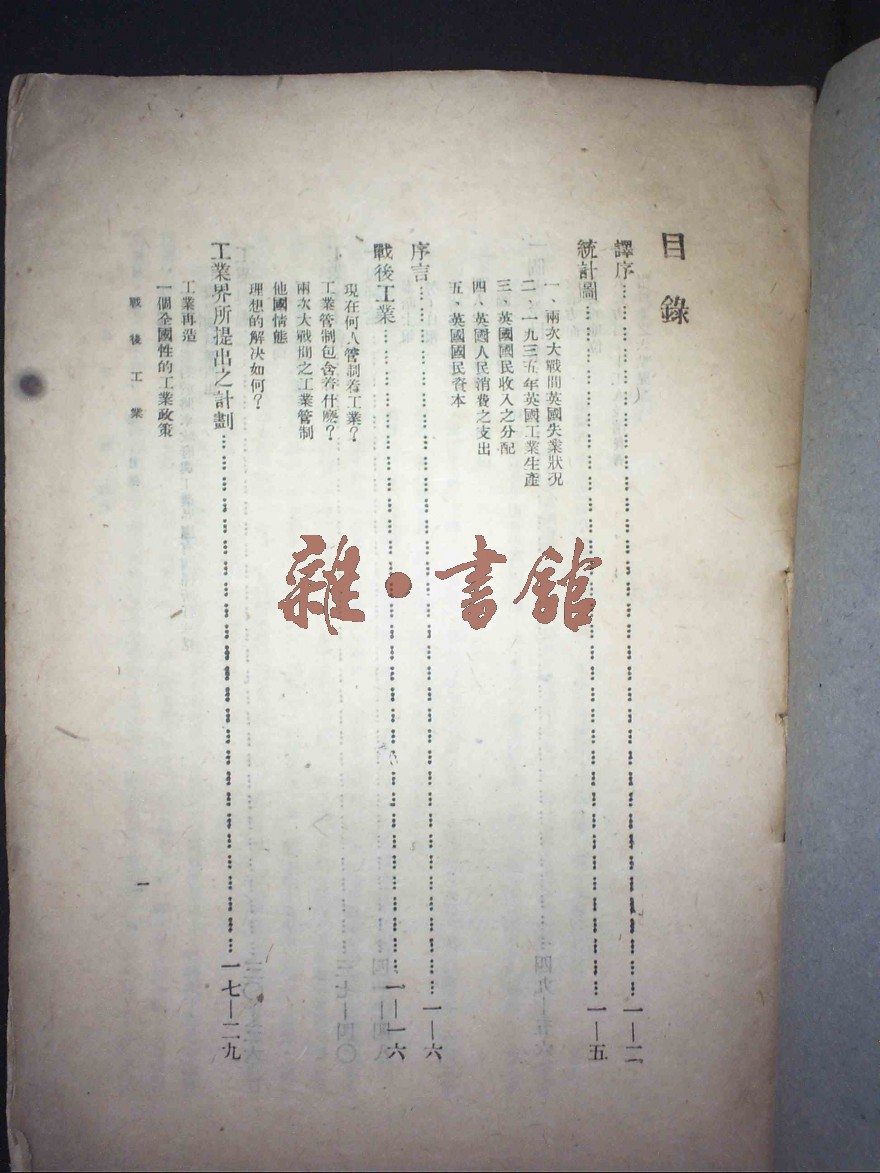 目錄
譯序……一—二
統計圖……一—五
一、兩次大戰間英國失業狀況
二、一九三五年英國工業生產
三、英國國民收入之分配
四、英國人民消費之支出
五、英國國民資本
序言……一—六
戰後工業……一—一六
現在何人管制着工業？
工業管制包含着什麼？
兩次大戰間之工業管制
他國情態
理想的解决如何？
工業界所提出之計劃……一七—二九
工業再造
一個全國性的工業政策
戰後工業
一
雜·書館